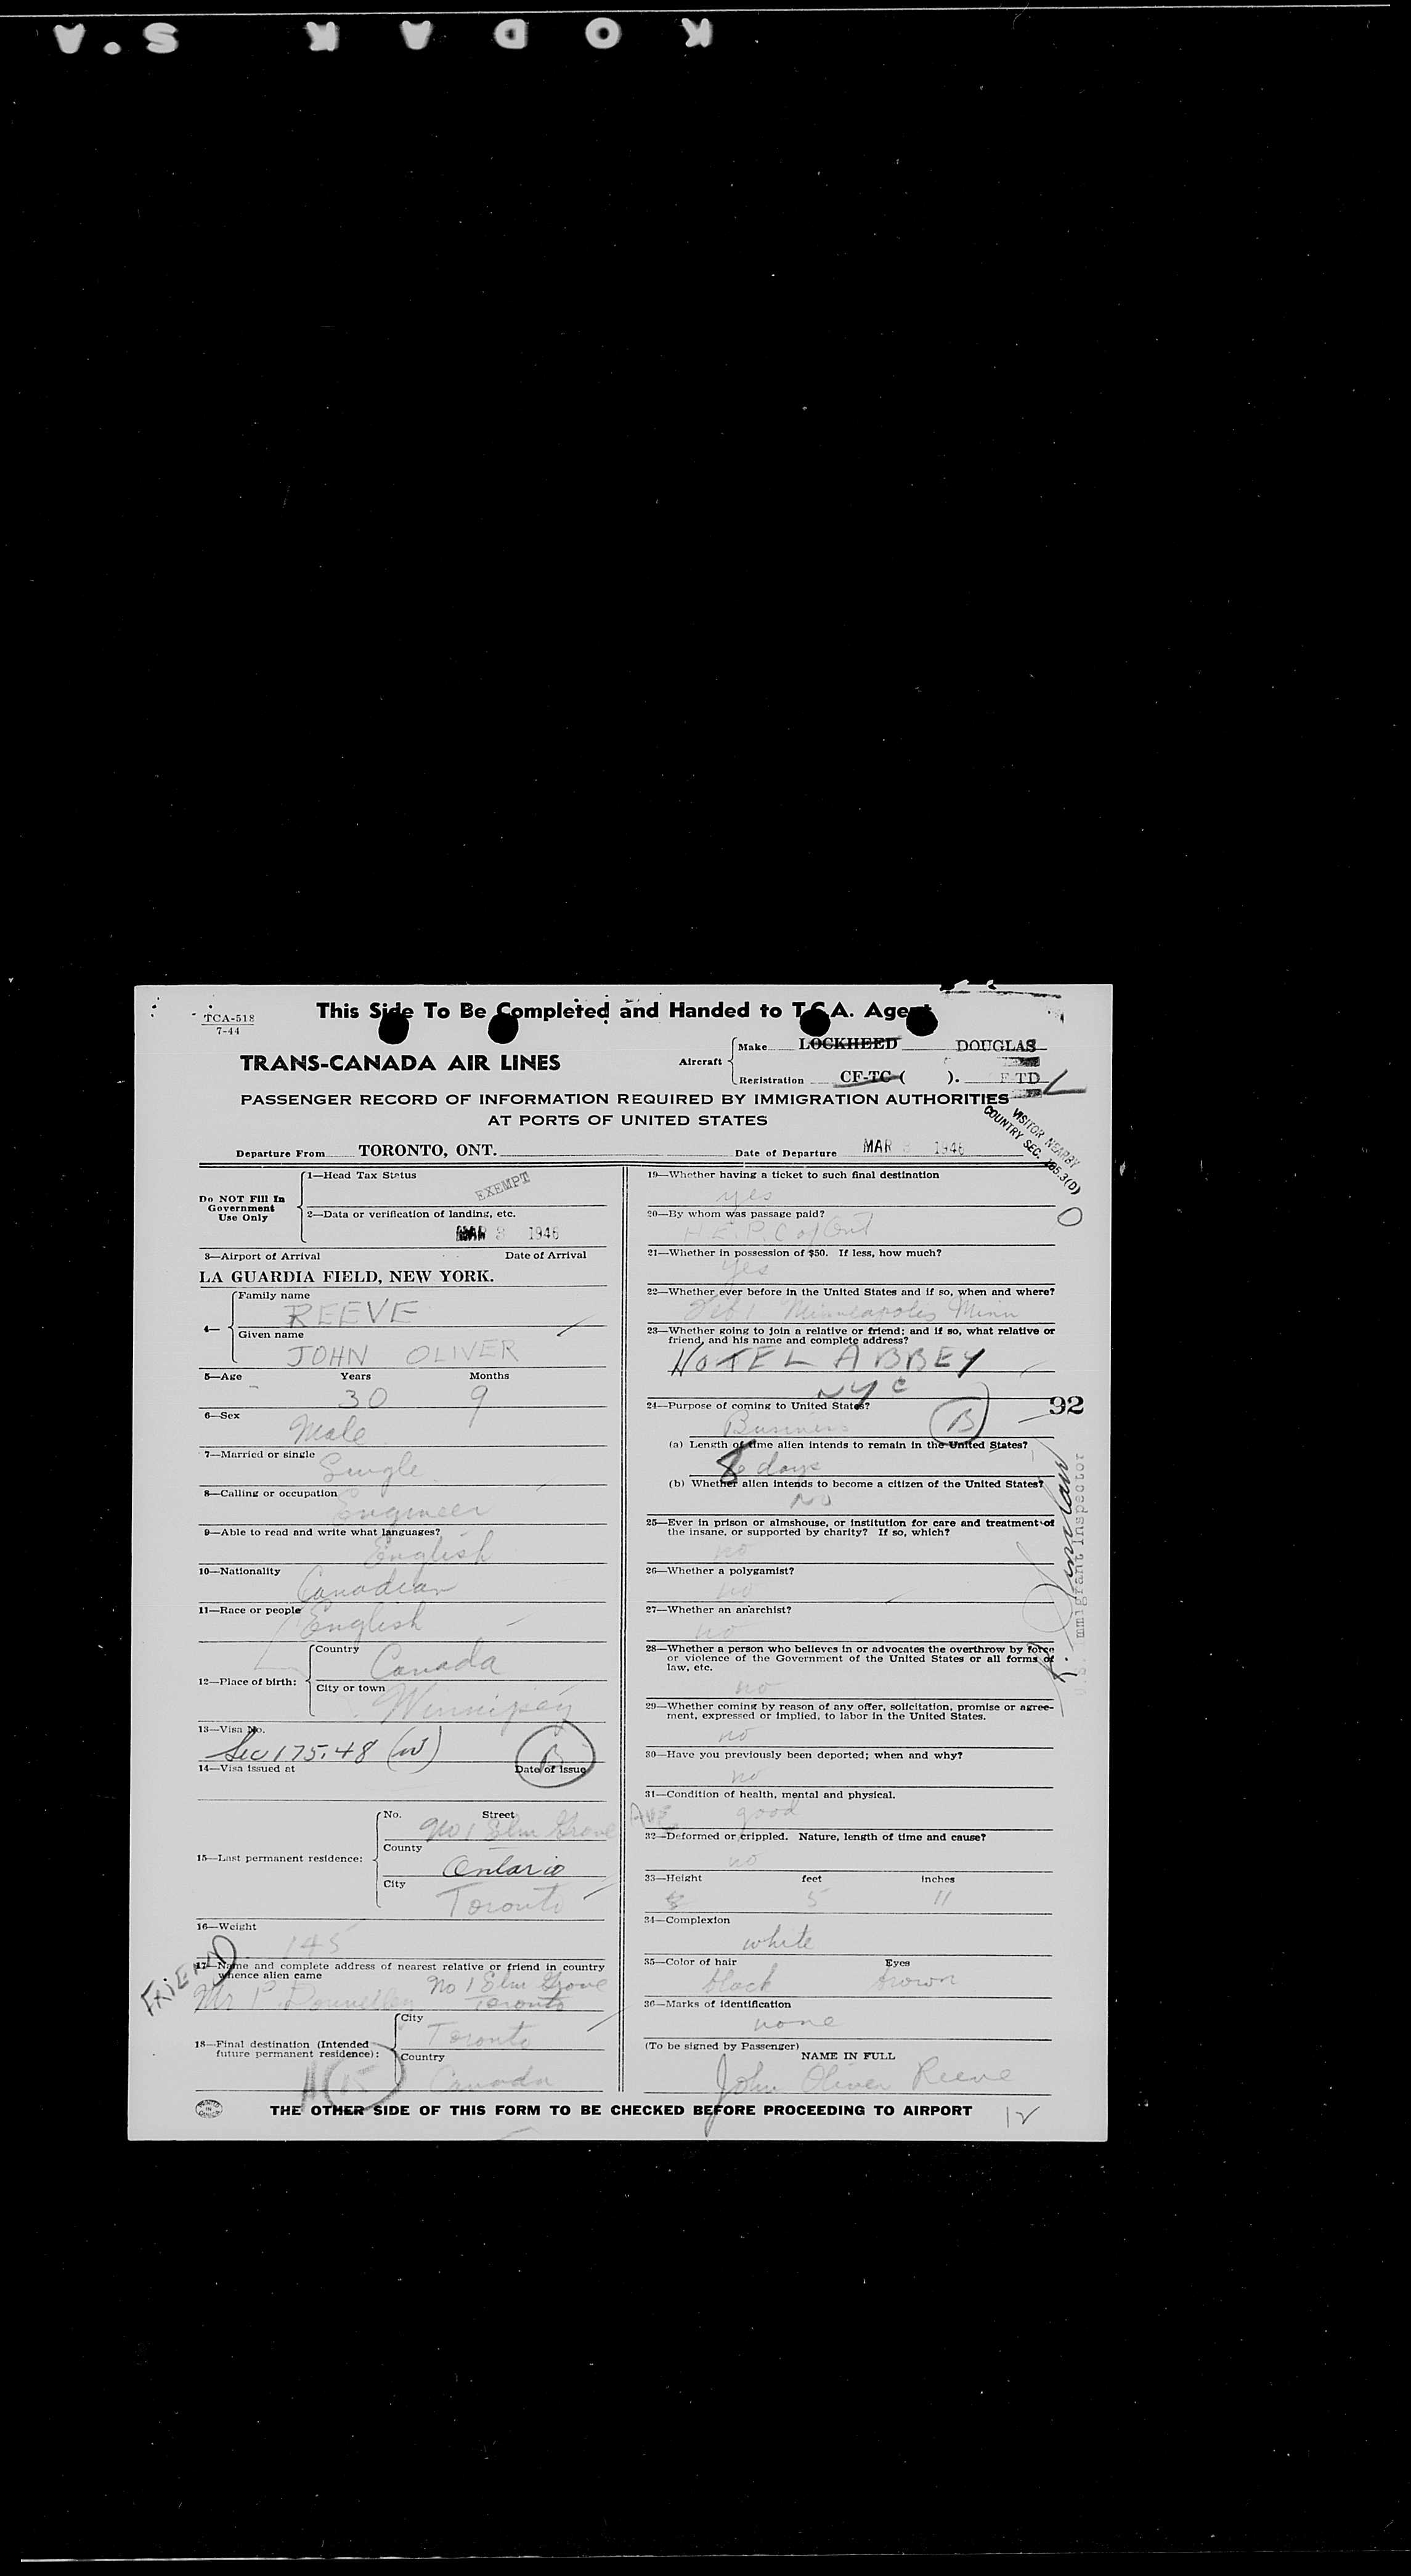 KODAK S.A
TCA-518
7-44
This Side To Be Completed and Handed to T.C.A. Agent
TRANS-CANADA AIR LINES
Aircraft
Make LOCKHEED DOUGLAS
Registration CF-TC ( ). F TD L
PASSENGER RECORD OF INFORMATION REQUIRED BY IMMIGRATION AUTHORITIES
AT PORTS OF UNITED STATES
VISITOR NEARBY
COUNTRY SEC. 3(D)
Departure From TORONTO, ONT. Date of Departure MAR 8 1946
Do NOT Fill In
Government
Use Only
1—Head Tax Status
EXEMPT
2—Data or verification of landing, etc.
MAR 8 1946
3—Airport of Arrival Date of Arrival
LA GUARDIA FIELD, NEW YORK.
4—
Family name
REEVE
Given name
JOHN OLIVER
5—Age Years Months
30 9
6—Sex
Male
7—Married or single
Single
8—Calling or occupation
Engineer
9—Able to read and write what languages?
English
10—Nationality
Canadian
11—Race or people
English
12—Place of birth:
Country
Canada
City or town
Winnipeg
13—Visa No.
Sec 175.48 (w)
B
14—Visa issued at Date of issue
15—Last permanent residence:
No. Street
No 1 Elm Grove Ave
County
Ontario
City
Toronto
16—Weight
145
FRIEND
17—Name and complete address of nearest relative or friend in country
whence alien came
No 1 Elm Grove
Mr P Toronto
18—Final destination (Intended
future permanent residence):
City
Toronto
Country
Canada
19—Whether having a ticket to such final destination
yes
20—By whom was passage paid?
H.E.P.C of Ont
21—Whether in possession of $50. If less, how much?
yes
22—Whether ever before in the United States and if so, when and where?
Minneapolis Minn
23—Whether going to join a relative or friend; and if so, what relative or
friend, and his name and complete address?
HOTEL ABBEY
NYC
24—Purpose of coming to United States?
Business
B
92
(a) Length of time alien intends to remain in the United States?
8 days
(b) Whether alien intends to become a citizen of the United States?
No
25—Ever in prison or almshouse, or institution for care and treatment of
the insane, or supported by charity? If so, which?
no
26—Whether a polygamist?
no
27—Whether an anarchist?
no
28—Whether a person who believes in or advocates the overthrow by force
or violence of the Government of the United States or all forms of
law, etc.
no
29—Whether coming by reason of any offer, solicitation, promise or agree-
ment, expressed or implied, to labor in the United States.
no
30—Have you previously been deported; when and why?
no
31—Condition of health, mental and physical.
good
32—Deformed or crippled. Nature, length of time and cause?
no
33—Height feet inches
5 11
34—Complexion
white
35—Color of hair Eyes
black brown
36—Marks of identification
none
(To be signed by Passenger)
NAME IN FULL
John Oliver Reeve
U.S. Immigrant Inspector
THE OTHER SIDE OF THIS FORM TO BE CHECKED BEFORE PROCEEDING TO AIRPORT